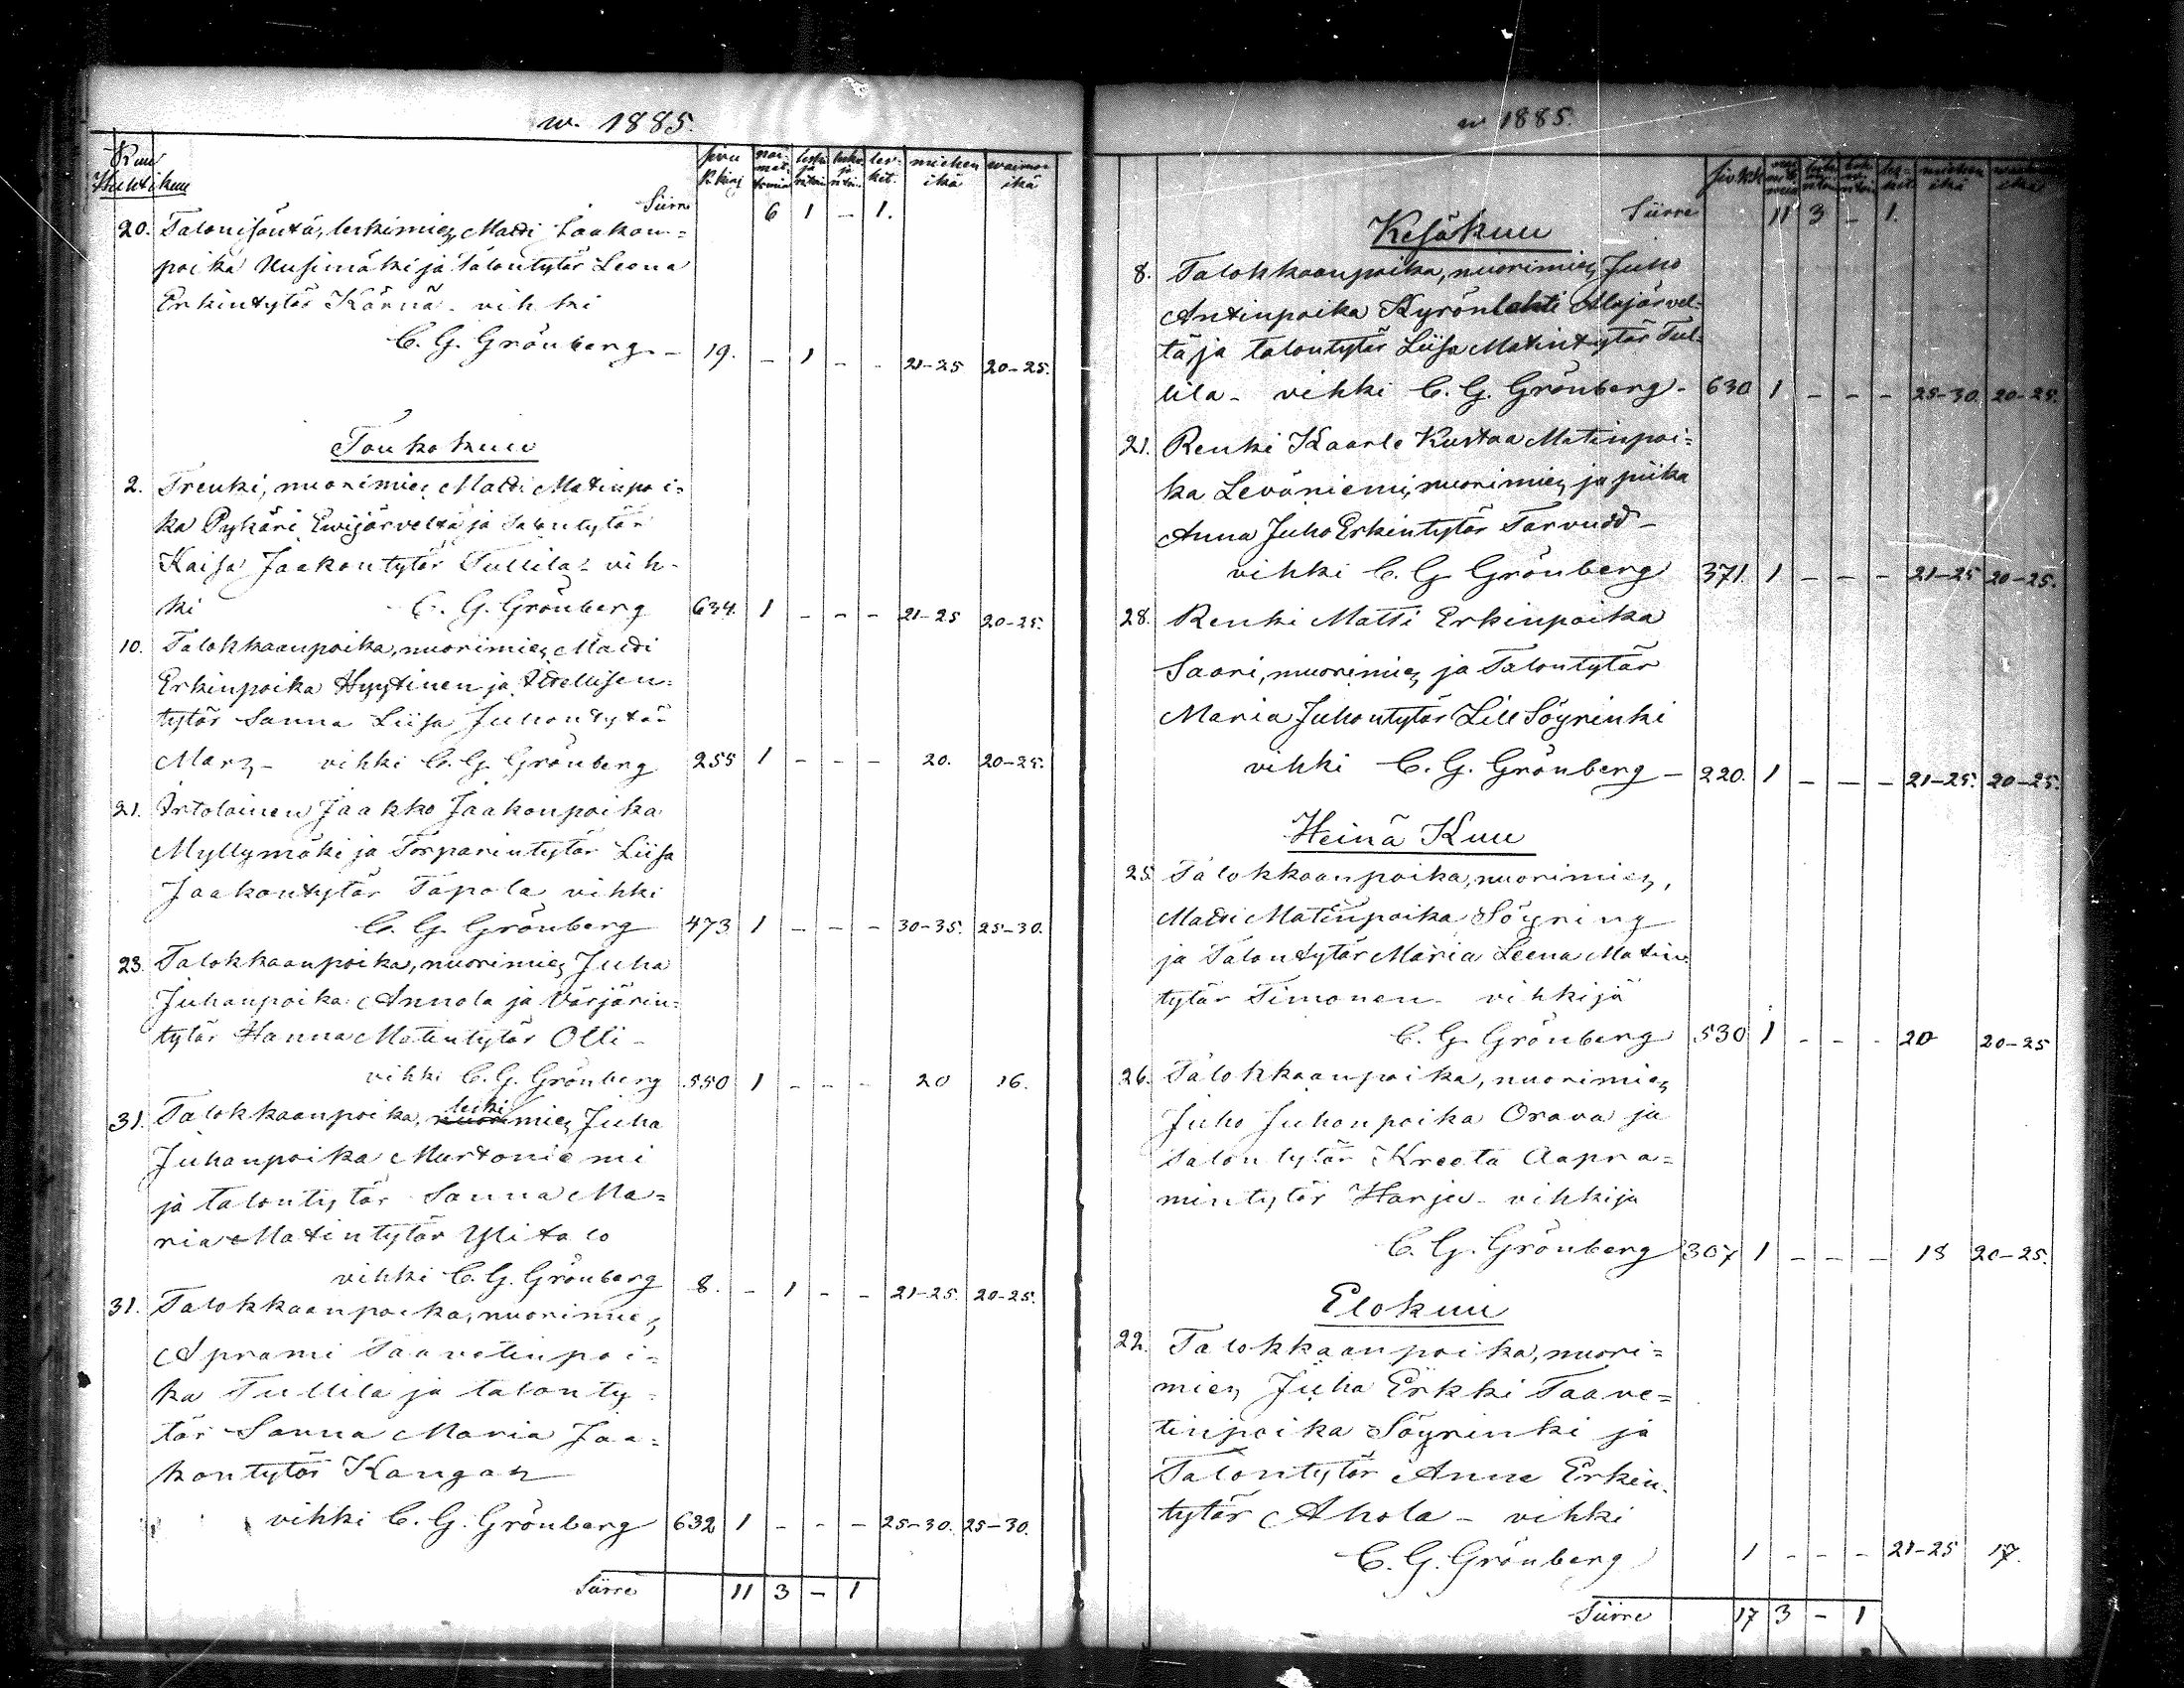 w. 1885.
Kuu
Huhtikuu
sivu R. kirj. nai-mat-tomia leski ja leski ja les-ket. miehen ikä vaimon ikä
Siirre 6 1 – 1.
20. Talonisäntä, leskimies, Matti Jaakon=
poika Uusimäki ja talontytär Leena
Erkintytär Kärnä. vihki
C. G. Grönberg. – 19. – 1 – - 21–25 20–25.
Toukokuu
2. Trenki, nuorimies Matti Matinpoi=
ka Pykäri Ewijärveltä ja talontytär
Kaisa Jaakontytär Tullila – vih-
ki C. G. Grönberg 634. 1 – – – 21–25 20–25.
10. Talokkaanpoika, nuorimies Matti
Erkinpoika Hyytinen ja Itsellisen=
tytär Sanna Liisa Juhontytär
Marz – vihki C. G. Grönberg 255 1 – – – 20. 20–25.
21. Irtolainen Jaakko Jaakonpoika
Myllymäki ja Torparintytär Liisa
Jaakontytär Tapola vihki
C. G. Grönberg 473 1 – – – 30–35. 25–30.
23. Talokkaanpoika, nuorimies Juha
Juhanpoika Annola ja Värjärin=
tytär Hanna Matintytär Olli –
vihki C. G. Grönberg 550 1 – – – 20 16.
31. Talokkaanpoika, leskimies Juha
Juhanpoika Murtoniemi
ja talontytär Sanna Ma=
ria Matintytär Ylitalo
vihki C. G. Grönberg 8. – 1 – – 21–25. 20–25.
31. Talokkaanpoika, nuorimies,
Aprami Taavetinpoi=
ka Tullila ja talonty=
tär Sanna Maria Jaa=
kontytär Kangas
vihki C. G. Grönberg 632 1 – – – 25–30. 25–30.
Siirre 11 3 – 1
w 1885.
miehen ikä
Siirre 11 3 – 1.
Kesäkuu
8. Talokkaanpoika, nuorimies Juho
Antinpoika Kyrönlahti Alajärvel=
tä ja talontytär Liisa Matintytär Tul=
lila – vihki C. G. Grönberg – 630 1 – – – 25–30. 20–25.
21. Renki Kaarle Kustaa Matinpoi=
ka Leväniemi, nuorimies, ja piika
Anna Juho Erkintytär Tarvudd –
vihki C. G. Grönberg 371. 1 – – – 21–25 20–25.
28. Renki Matti Erkinpoika
Saari, nuorimies, ja Talontytär
Maria Juhontytär Lill Söyrinki
vihki C. G. Grönberg – 220. 1 – – – 21–25. 20–25.
Heinä Kuu
25 Talokkaanpoika, nuorimies,
Matti Matinpoika Söyring
ja Talontytär Maria Leena Matin
tytär Timonen – vihkijä
C. G. Grönberg 530 1 – – - 20 20–25
26. Talokkaanpoika, nuorimies,
Juho Juhonpoika Orava ja
talontytär Kreeta Aapra=
mintytär Harju – vihkijä
C. G. Grönberg 307 1 – – – 18 20–25.
Elokuu
22. Talokkaanpoika, nuori=
mies, Juha Erkki Taave=
tinpoika Söyrinki ja
Talontytär Anna Erkin
tytär Ahola – vihki
C. G. Grönberg 1 – – – 21–25 17.
Siirre 17 3 – 1